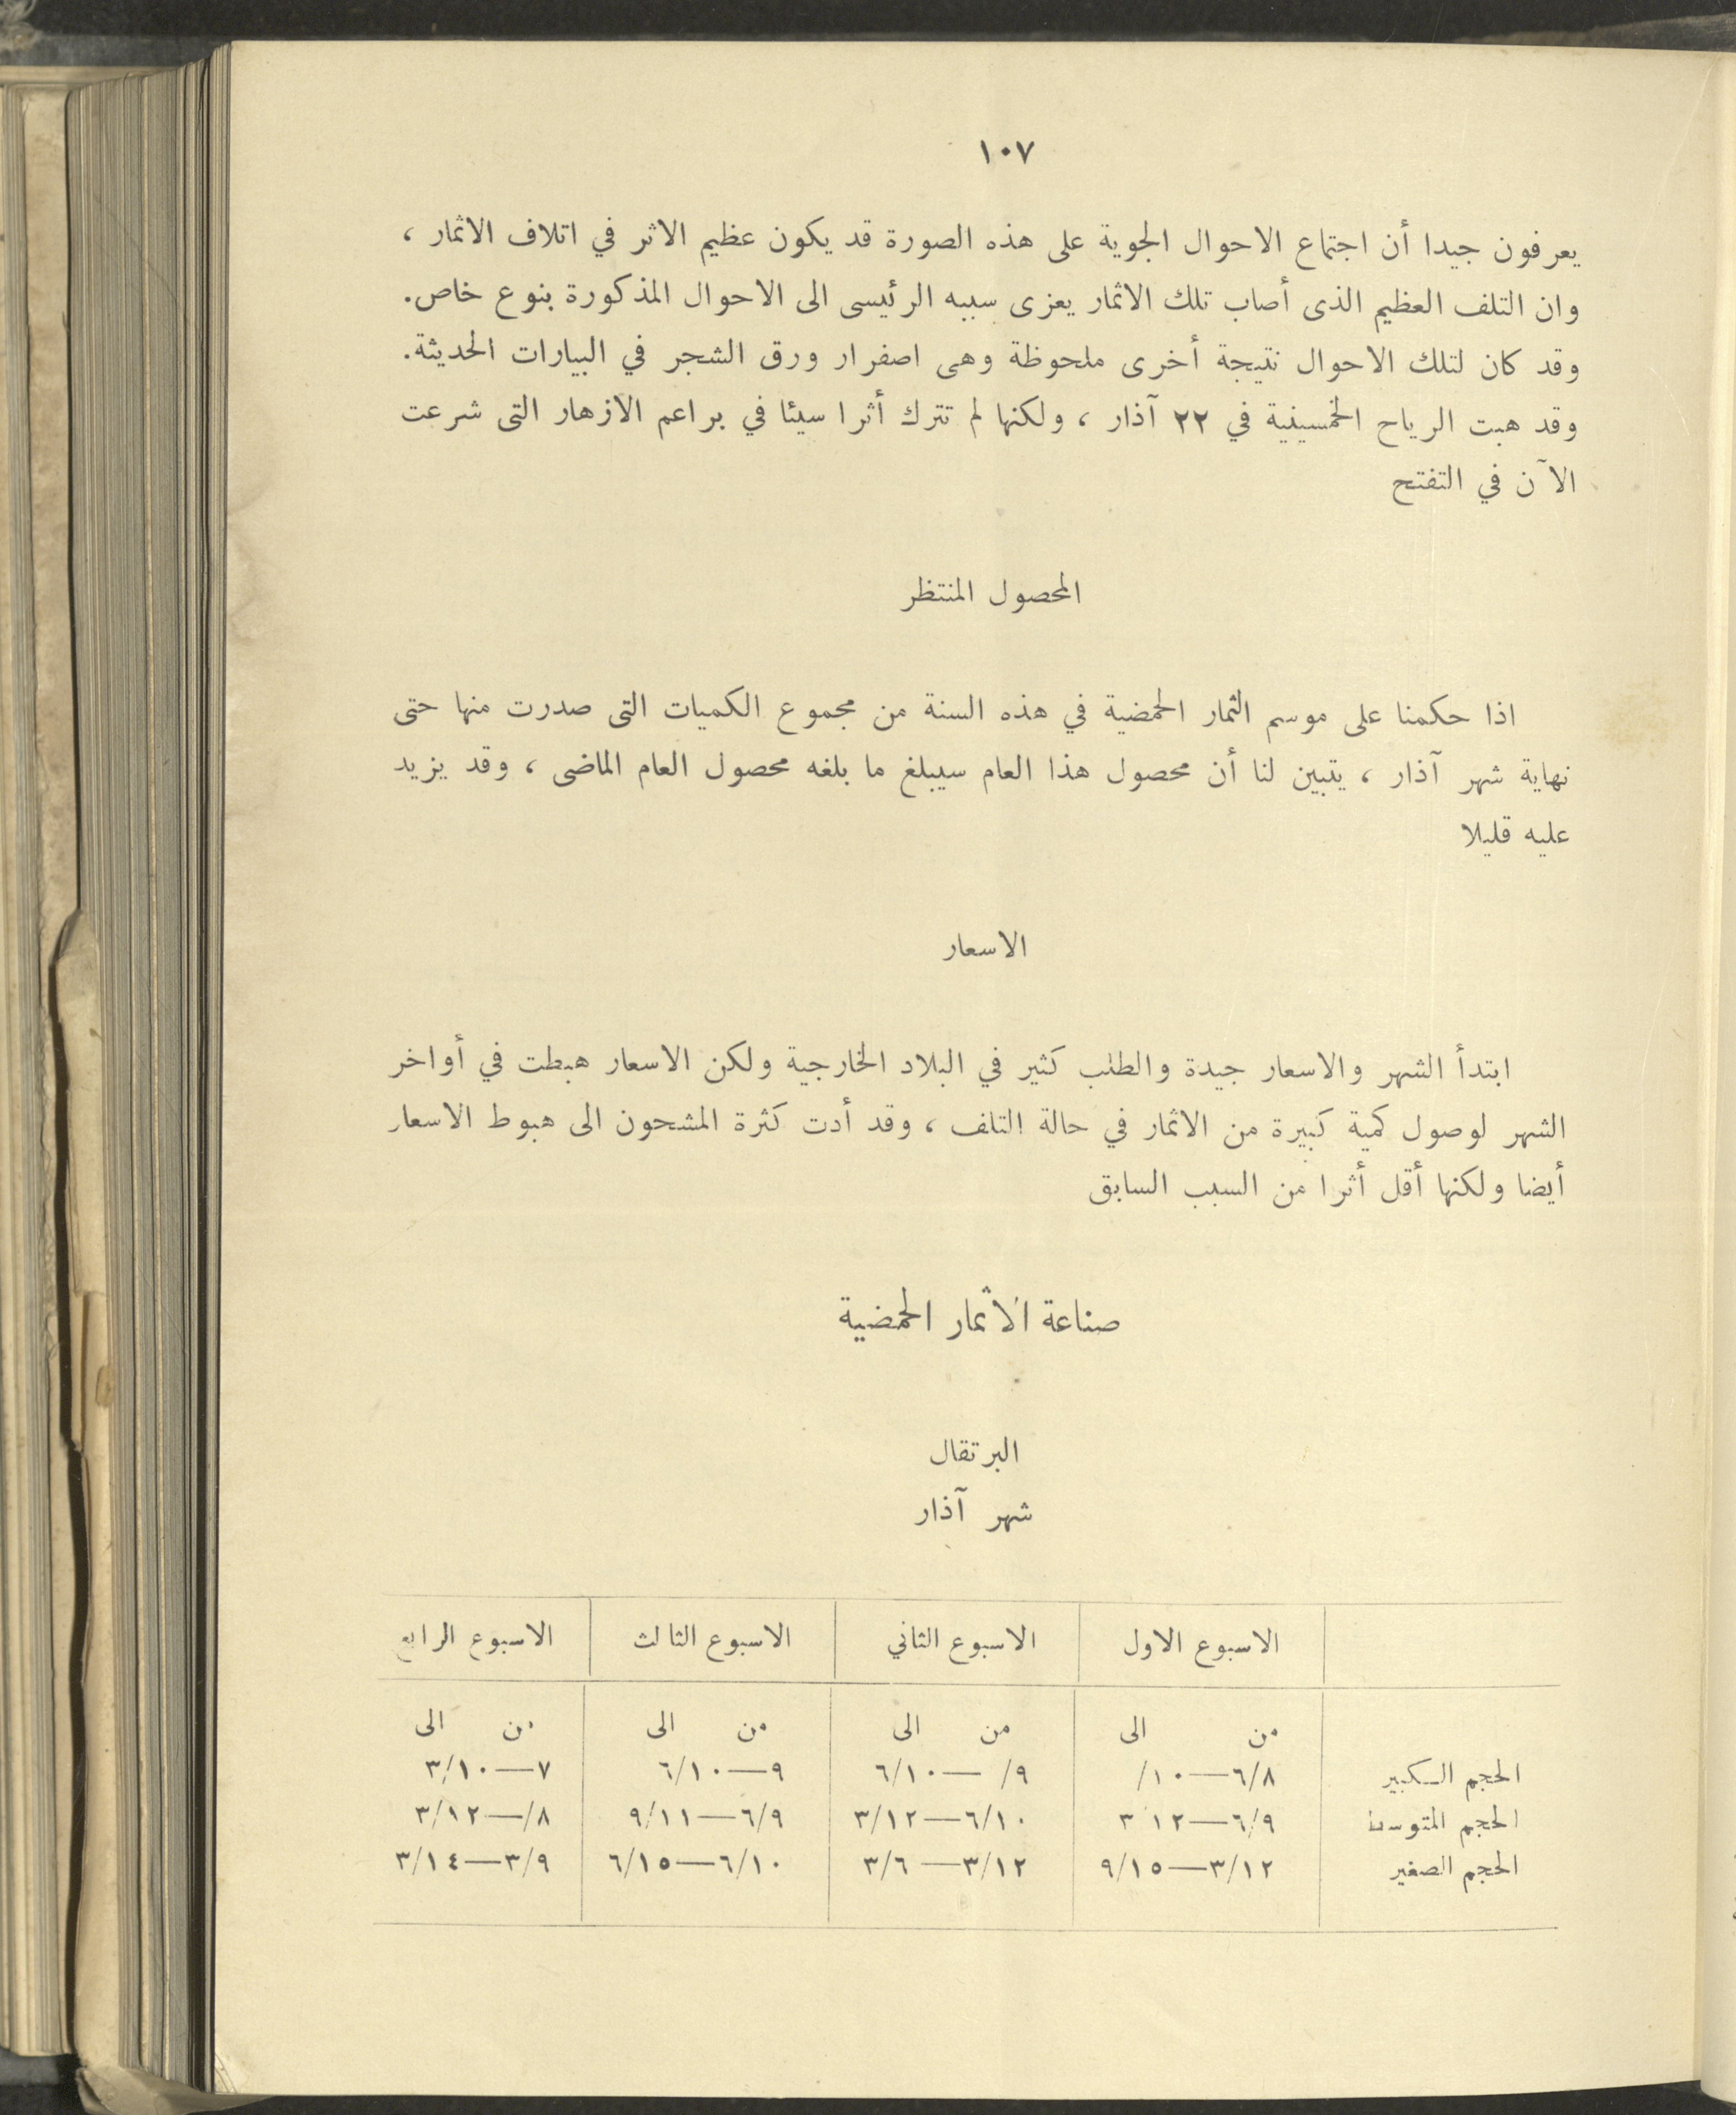 ١٠٧
يعرفون جيدا أن اجتماع الاحوال الجوية على هذه الصورة قد يكون عظيم الاثر في اتلاف الاثمار ،
وان التلف العظيم الذى أصاب تلك الاثمار يعزى سببه الرئيسى الى الاحوال المذكورة بنوع خاص.
وقد كان لتلك الاحوال نتيجة أخرى ملحوظة وهى اصفرار ورق الشجر في البيارات الحديثة.
وقد هبت الرياح الخمسينية في ٢٢ آذار ، ولكنها لم تترك أثرا سيئا في براعم الازهار التى شرعت
الآن في التفتح
المحصول المنتظر
اذا حكمنا على موسم الثمار الحمضية في هذه السنة من مجموع الكميات التى صدرت منها حتى
نهاية شهر آذار ، يتبين لنا أن محصول هذا العام سيبلغ ما بلغه محصول العام الماضى ، وقد يزيد
عليه قليلا
الاسعار
ابتدأ الشهر والاسعار جيدة والطلب كثير في البلاد الخارجية ولكن الاسعار هبطت في أواخر
الشهر لوصول كمية كبيرة من الاثمار في حالة التلف ، وقد أدت كثرة المشحون الى هبوط الاسعار
أيضا ولكنها أقل أثرا من السبب السابق
صناعة الاثمار الحمضية
البرتقال
شهر آذار
الاسبوع الاول الاسبوع الثاني الاسبوع الثالث الاسبوع الرابع
من الى من الى من الى من الى
الحجم الكبير ٦/٨—١٠/ ٩/—٦/١٠ ٩—٦/١٠ ٧—٣/١٠
الحجم المتوسط ٦/٩—١٢ ٣ ٦/١٠—٣/١٢ ٦/٩—٩/١١ ٨/—٣/١٢
الحجم الصغير ٣/١٢—٩/١٥ ٣/١٢—٣/٦ ٦/١٠—٦/١٥ ٣/٩—٣/١٤